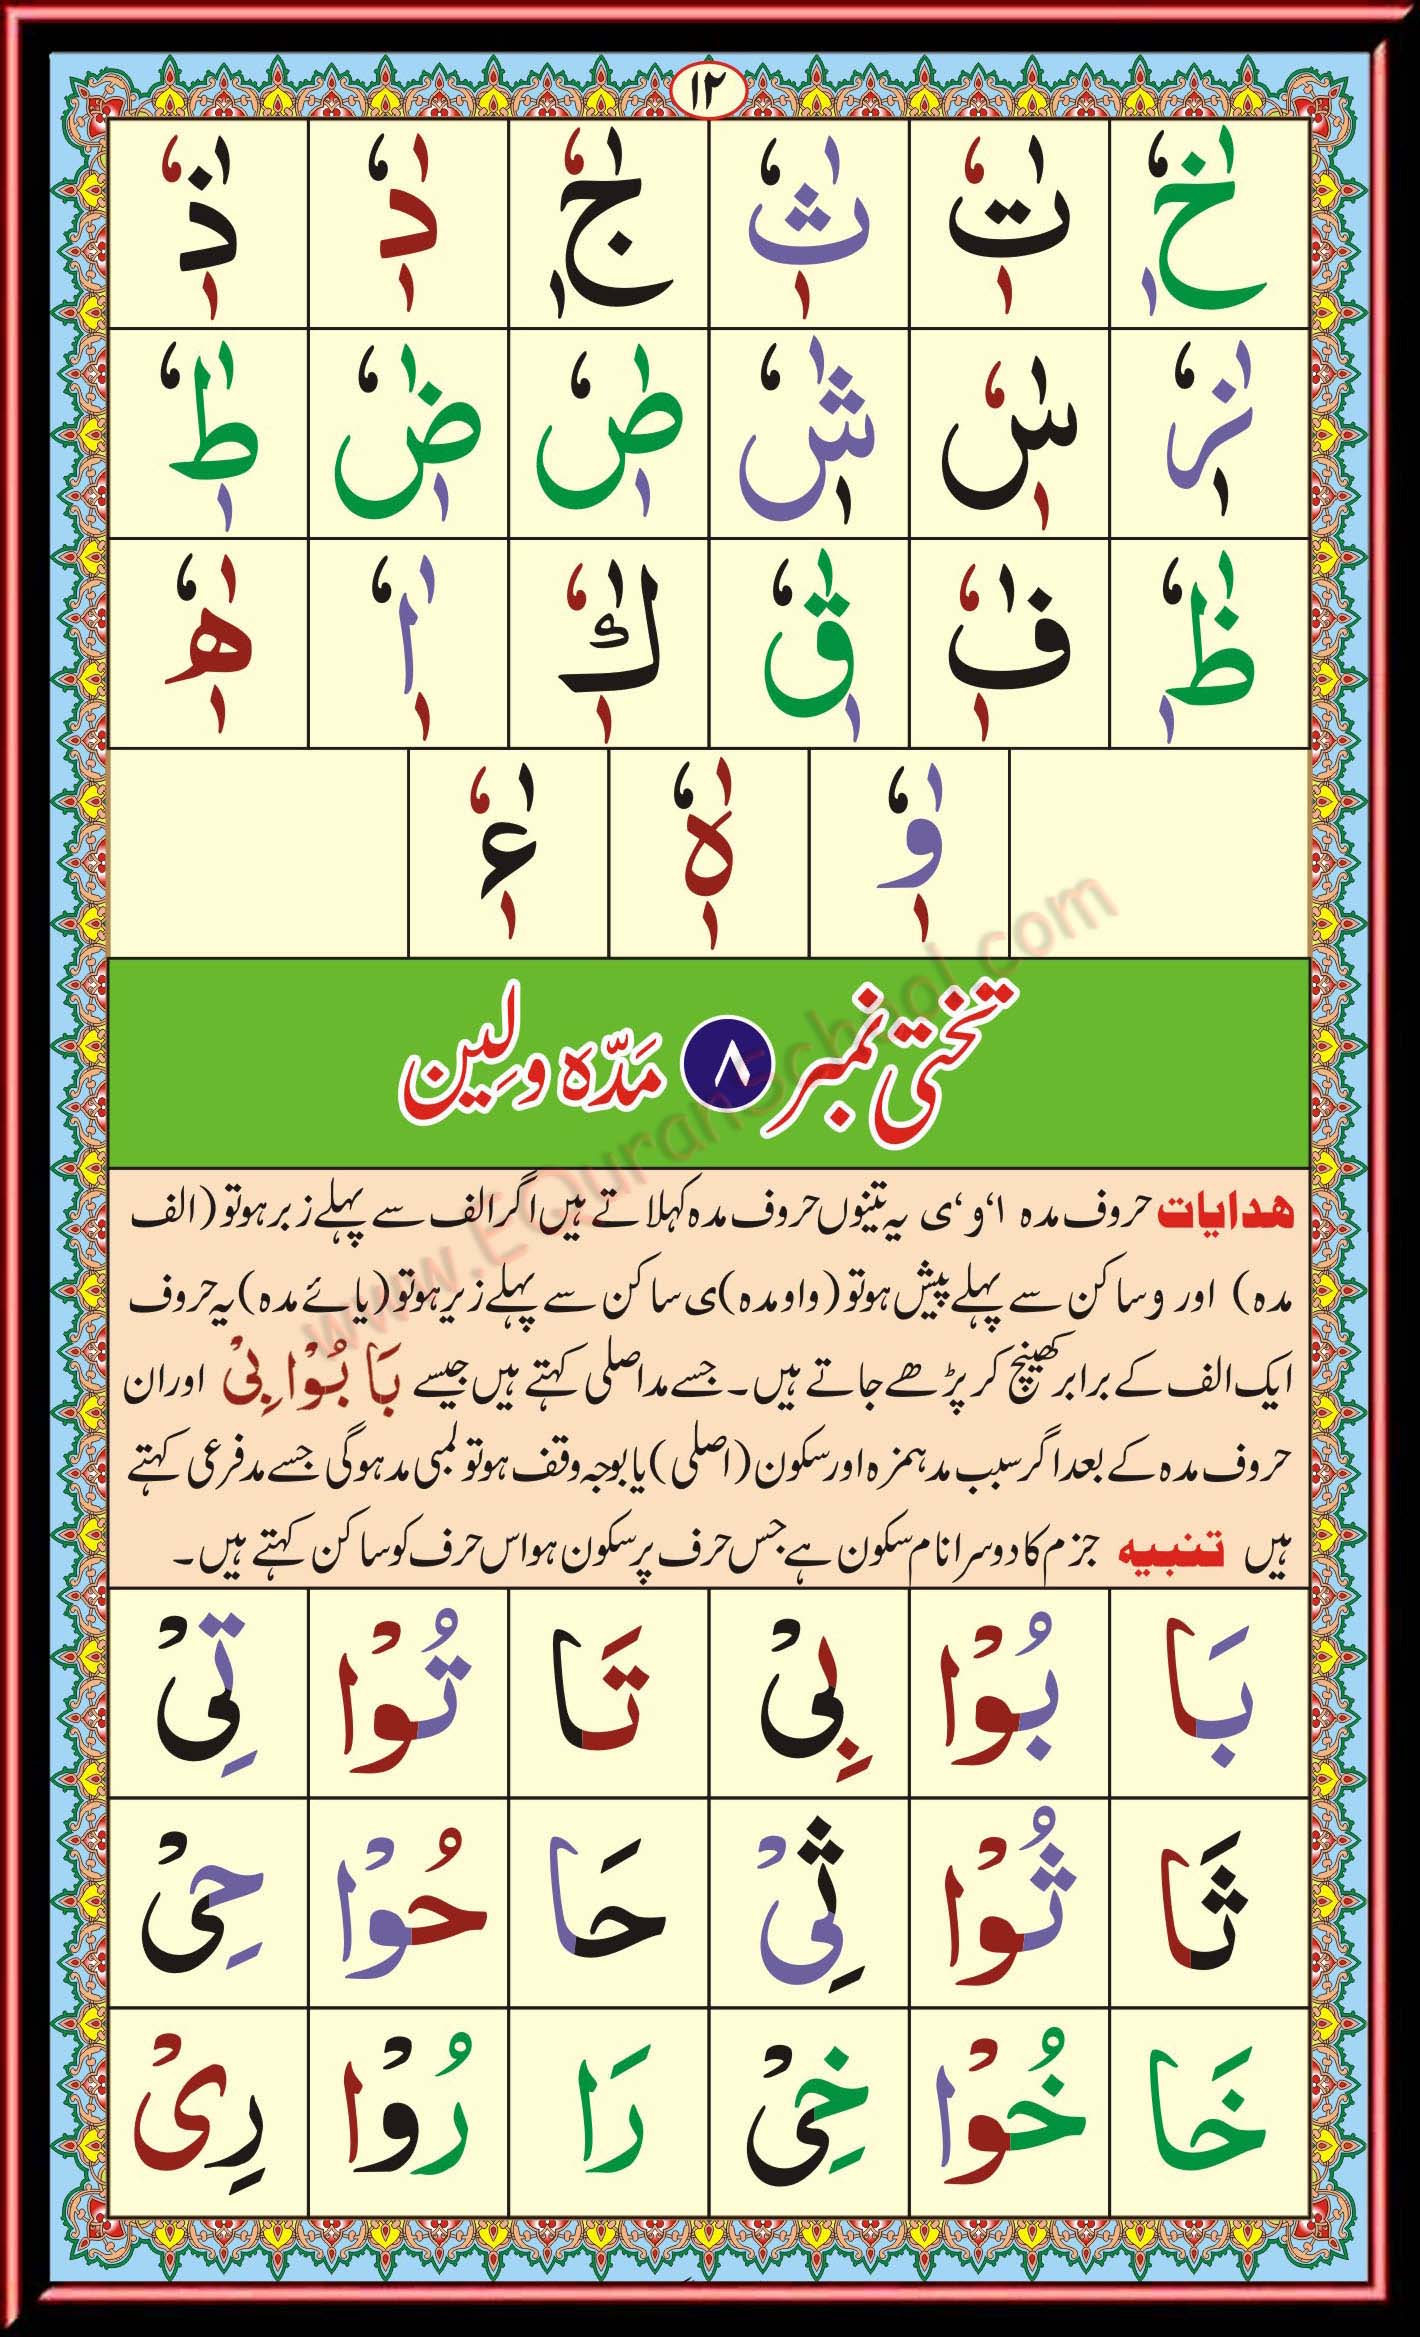 ١٢
خٰ خٖ خٗ تٰ تٖ تٗ ثٰ ثٖ ثٗ جٰ جٖ جٗ دٰ دٖ دٗ ذٰ ذٖ ذٗ
زٰ زٖ زٗ سٰ سٖ سٗ شٰ شٖ شٗ صٰ صٖ صٗ ضٰ ضٖ ضٗ طٰ طٖ طٗ
ظٰ ظٖ ظٗ فٰ فٖ فٗ قٰ قٖ قٗ كٰ كٖ كٗ اٰ اٖ اٗ ھٰ ھٖ ھٗ
وٰ وٖ وٗ ہٰ ہٖ ہٗ ءٰ ءٖ ءٗ
تختی نمبر ٨ مَدّہ و لِین
ھدایات حروف مدہ ا‘و‘ی یہ تینوں حروف مدہ کہلاتے ہیں اگر الف سے پہلے زبر ہو تو (الف
مدہ) اور و ساکن سے پہلے پیش ہو تو (واو مدہ) ی ساکن سے پہلے زیر ہو تو (یائے مدہ) یہ حروف
ایک الف کے برابر کھینچ کر پڑھے جاتے ہیں۔ جسے مد اصلی کہتے ہیں جیسے بَا بُوْا بِیْ اور ان
حروف مدہ کے بعد اگر سبب مد ہمزہ اور سکون (اصلی) یا بوجہ وقف ہو تو لمبی مد ہوگی جسے مد فرعی کہتے
ہیں تنبیہ جزم کا دوسرا نام سکون ہے جس حرف پر سکون ہو اس حرف کو ساکن کہتے ہیں۔
بَا بُوْا بِیْ تَا تُوْا تِیْ
ثَا ثُوْا ثِیْ حَا حُوْا حِیْ
خَا خُوْا خِیْ رَا رُوْا رِیْ
www.EQuranSchool.com